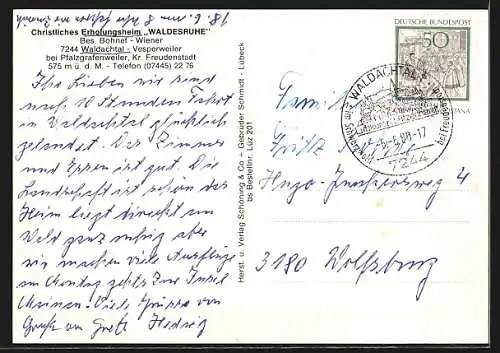 18. 6. um 8 Uhr fahren wir zurück
Christliches Erholungsheim „WALDESRUHE"
Bes. Bohnet - Wiener
7244 Waldachtal - Vesperweiler
bei Pfalzgrafenweiler, Kr. Freudenstadt
575 m ü. d. M. - Telefon (07445) 22 76
Ihr Lieben wir sind
nach 10 Stunden Fahrt
in Waldachtal glücklich
gelandet. Der Zimmer
und Essen ist gut. Die
Landschaft ist schön das
Heim liegt direkt im
Wald ganz ruhig aber
wir machen viele Ausflüge
am Montag gehts zur Insel
Mainau. Viele Grüsse von
Gruß an Grete Hedwig
Herst. u. Verlag Schöning & Co + Gebrüder Schmidt - Lübeck
bs Bestellnr. Lüz 201
DEUTSCHE BUNDESPOST
50
WALDACHTAL
bei Freudenstadt
-6.-6.88-17
7244
Familie
Fritz
Hugo-Junkersweg 4
3180 Wolfsburg